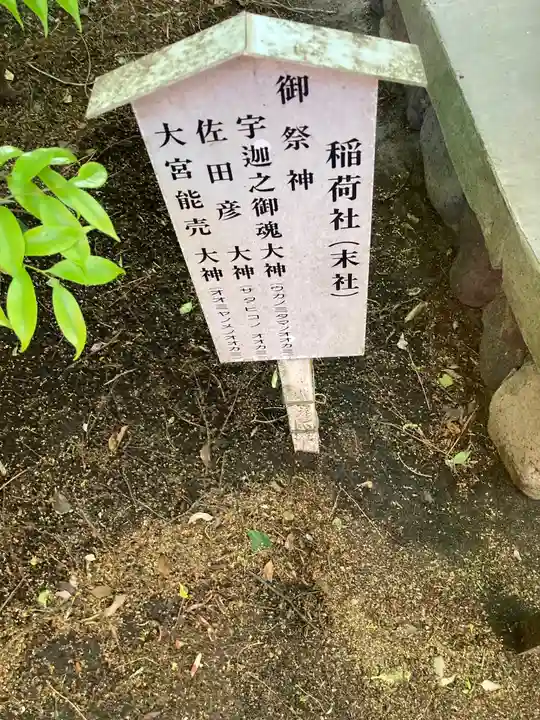 稲荷社(末社)
御祭神
宇迦之御魂大神(ウカノミタマノオオカミ)
佐田彦 大神(サタヒコノオオカミ)
大宮能売 大神(オオミヤノメノオオカミ)